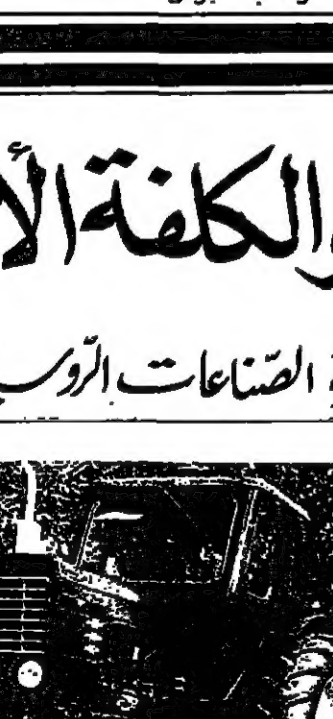 والكلفة الأ
الصّناعات الرّوسـ